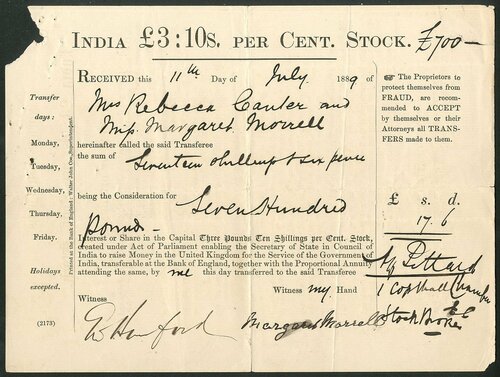 INDIA £3:10s. PER CENT. STOCK. £700—
RECEIVED this 11th Day of July 1889 of
Mrs Rebecca Canter and
Miss Margaret Morrell
hereinafter called the said Transferee
the sum of Seventeen shillings & six pence
being the Consideration for
Seven Hundred
pounds—
Interest or Share in the Capital Three Pounds Ten Shillings per Cent. Stock,
created under Act of Parliament enabling the Secretary of State in Council of
India to raise Money in the United Kingdom for the Service of the Government of
India, transferable at the Bank of England, together with the Proportional Annuity
attending the same, by me this day transferred to the said Transferee
Witness my Hand
Witness
Margaret Morrell
Transfer
days:
Monday,
Tuesday,
Wednesday,
Thursday,
Friday.
Holidays
excepted.
(2173)
Printed at the Bank of England
The Proprietors
to protect themselves from
FRAUD, are recom-
mended to ACCEPT
by themselves or their
Attorneys all TRANS-
FERS made to them.
£ s. d.
17. 6
1 Copthall Chambers
Stock Broker